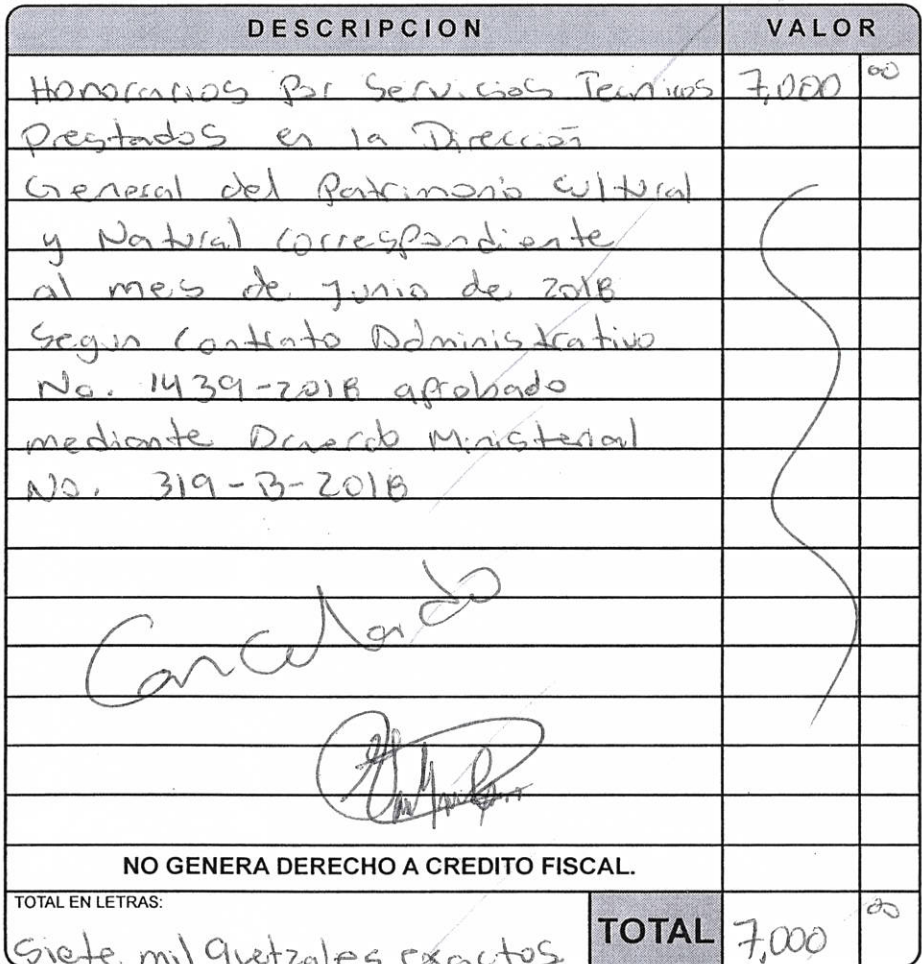 DESCRIPCION VALOR
Honorarios Por Servicios Tecnicos 7,000 00
Prestados en la Dirección
General del Patrimonio Cultural
y Natural correspondiente
al mes de Junio de 2018
Segun Contrato Administrativo
No. 1439-2018 aprobado
mediante Acuerdo Ministerial
No. 319-B-2018
Cancelado
NO GENERA DERECHO A CREDITO FISCAL.
TOTAL EN LETRAS:
Siete mil Quetzales exactos TOTAL 7,000 00